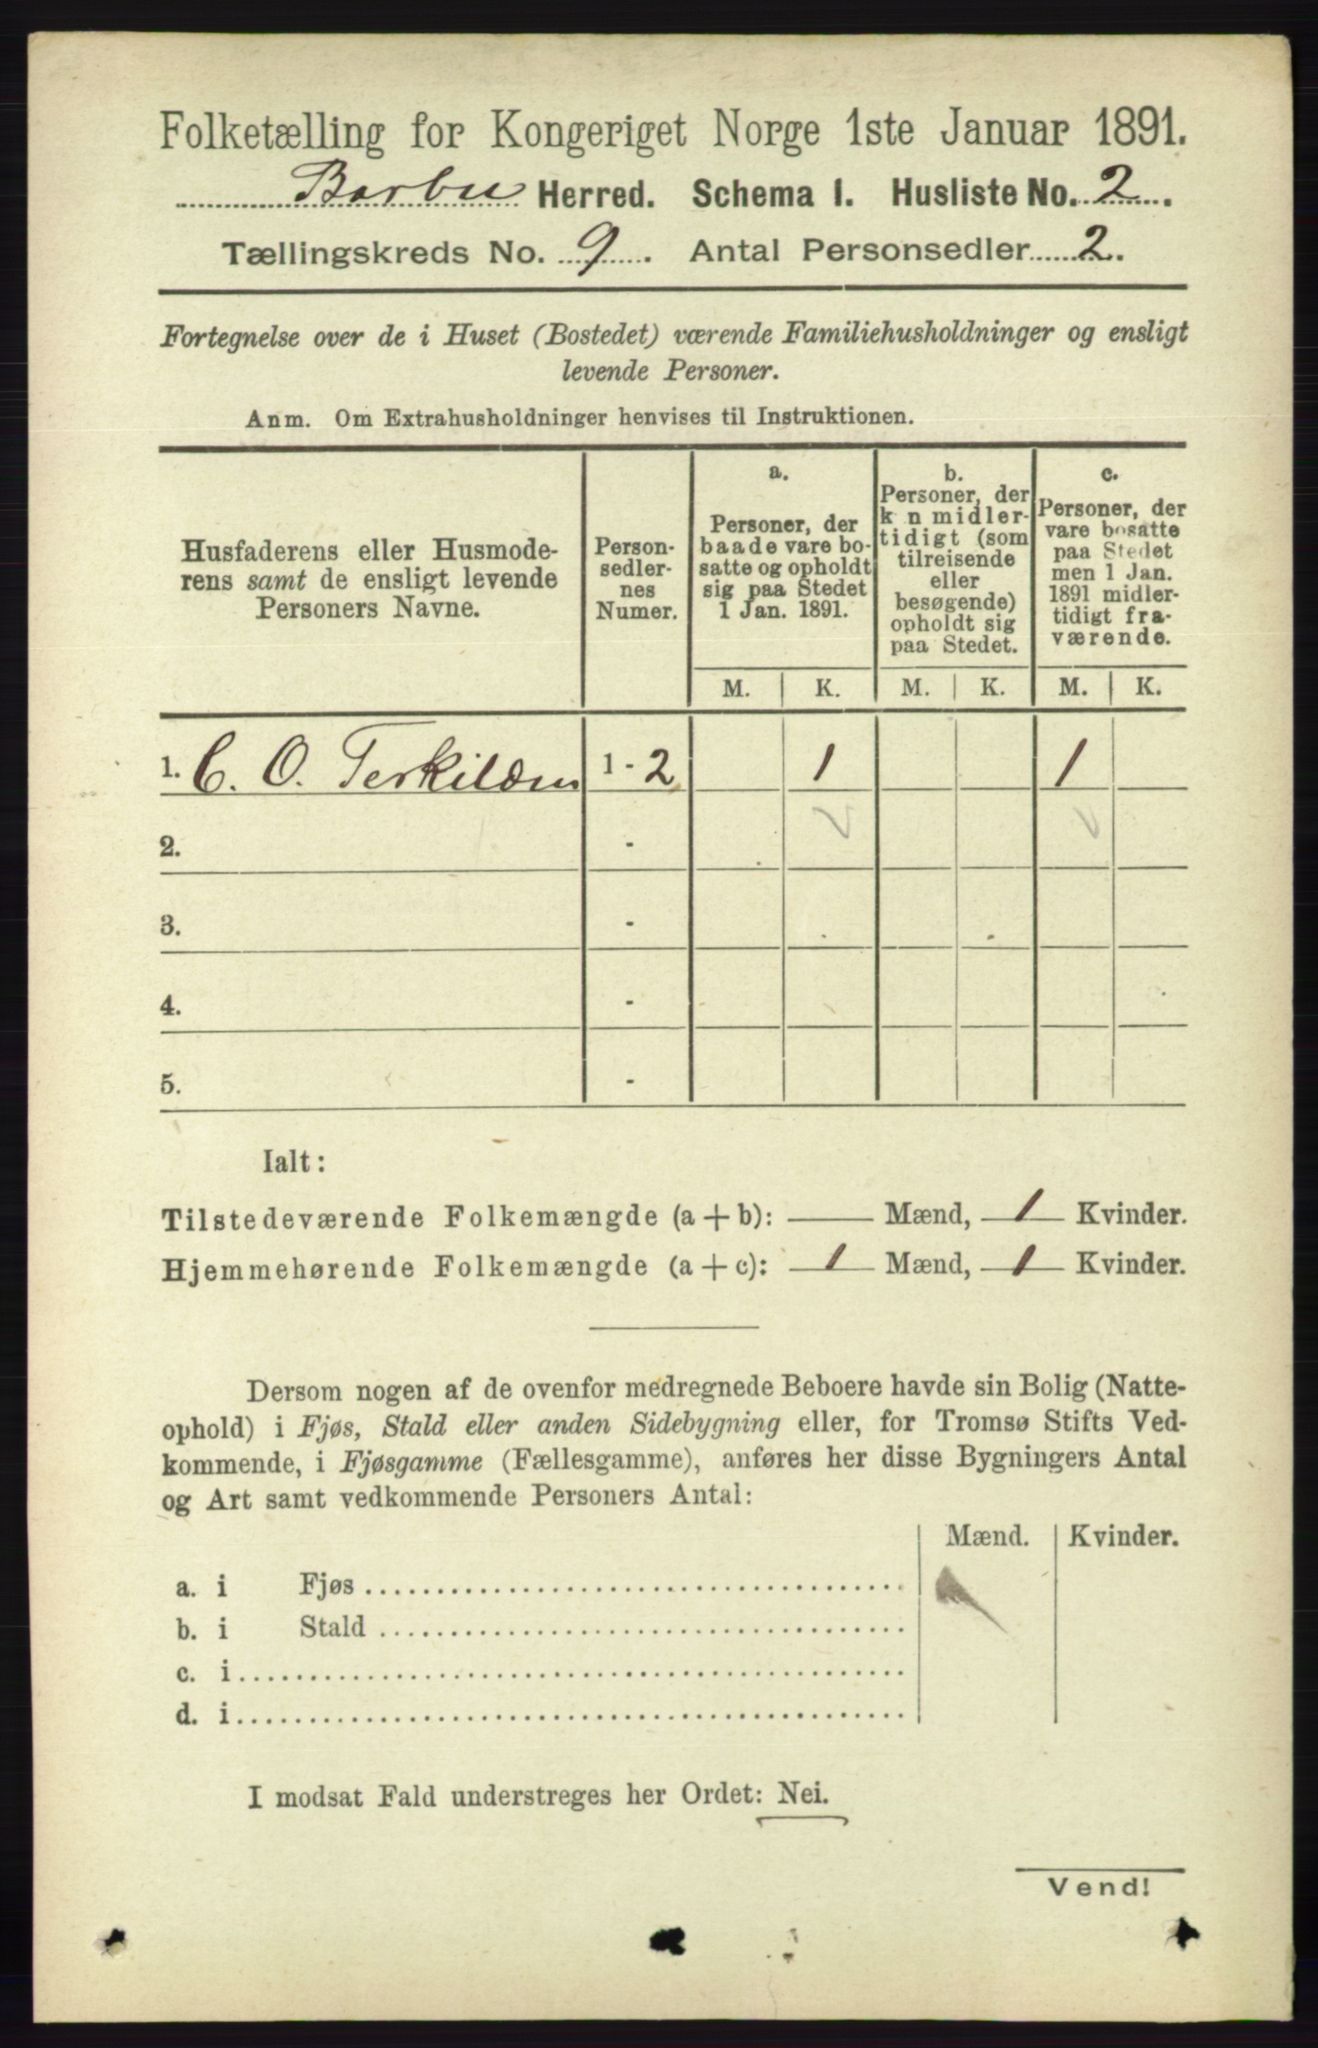 Folketælling for Kongeriget Norge 1ste Januar 1891.
Barbu Herred. Schema 1. Husliste No. 2.
Tællingskreds No. 9. Antal Personsedler 2.
Fortegnelse over de i Huset (Bostedet) værende Familiehusholdninger og ensligt
levende Personer.
Anm. Om Extrahusholdninger henvises til Instruktionen.
Husfaderens eller Husmode-
rens samt de ensligt levende
Personers Navne.
Person-
sedler-
nes
Numer.
a.
Personer, der
baade vare bo-
satte og opholdt
sig paa Stedet
1 Jan. 1891.
b.
Personer, der
k n midler-
tidigt (som
tilreisende
eller
besøgende)
opholdt sig
paa Stedet.
c.
Personer, der
vare bosatte
paa Stedet
men 1 Jan.
1891 midler-
tidigt fra-
værende.
M. K. M. K. M. K.
1. C. O. Terkildsen 1 - 2 1 1
2. -
3. -
4. -
5. -
Ialt:
Tilstedeværende Folkemængde (a + b): — Mænd, 1 Kvinder.
Hjemmehørende Folkemængde (a + c): 1 Mænd, 1 Kvinder.
Dersom nogen af de ovenfor medregnede Beboere havde sin Bolig (Natte-
ophold) i Fjøs, Stald eller anden Sidebygning eller, for Tromsø Stifts Ved-
kommende, i Fjøsgamme (Fællesgamme), anføres her disse Bygningers Antal
og Art samt vedkommende Personers Antal:
Mænd. Kvinder.
a. i Fjøs
b. i Stald
c. i
d. i
I modsat Fald understreges her Ordet: Nei.
Vend!